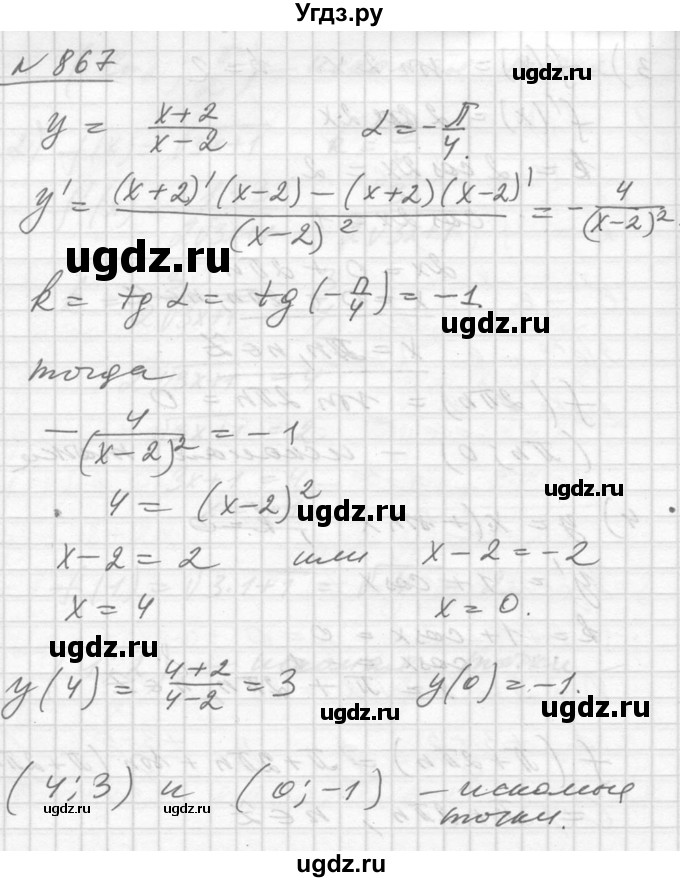 Угдз.ру
N 867
ugdz.ru
y = (x+2)/(x-2)   α = -π/4.
y' = ((x+2)'(x-2) - (x+2)(x-2)')/(x-2)² = -4/(x-2)².
ugdz.ru
k = tg α = tg(-π/4) = -1.
ugdz.ru
тогда
-4/(x-2)² = -1
ugdz.ru
4 = (x-2)²
ugdz.ru
x-2 = 2   или   x-2 = -2
x = 4   x = 0.
ugdz.ru
y(4) = (4+2)/(4-2) = 3   y(0) = -1.
ugdz.ru   ugdz.ru
(4; 3) и (0; -1) - искомые
ugdz.ru   ugdz.ru   ugdz.ru
точки.
ugdz.ru